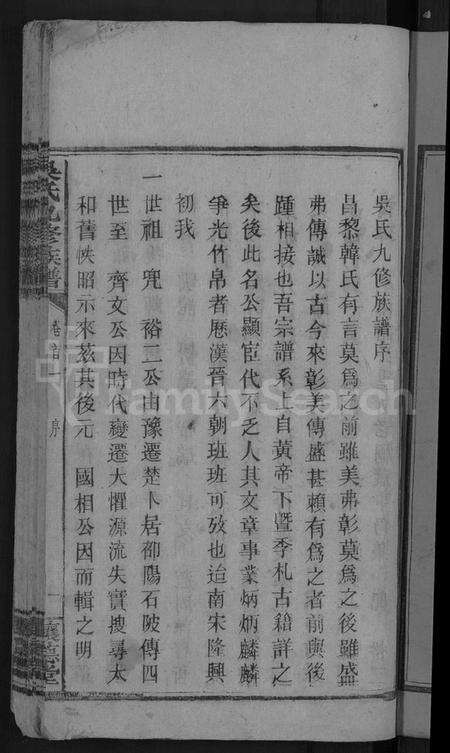 吳氏九修族譜序
昌黎韓氏有言莫爲之前雖美弗彰莫爲之後雖盛
弗傳誠以古今來彰美傳盛甚賴有爲之者前與後
踵相接也吾宗譜系上自黃帝下暨季札古籍詳之
矣後此名公顯宦代不乏人其文章事業炳炳麟麟
爭光竹帛者歷漢晉六朝班班可攷也迨南宋隆興
初我
一世祖 兕 裕三公由豫遷楚卜居邵陽石陂傳四
世至 齊文公因時代變遷大懼源流失實搜尋太
和舊帙昭示來茲其後元 國相公因而輯之明
吳氏九修族譜
卷首
序
一
FamilySearch